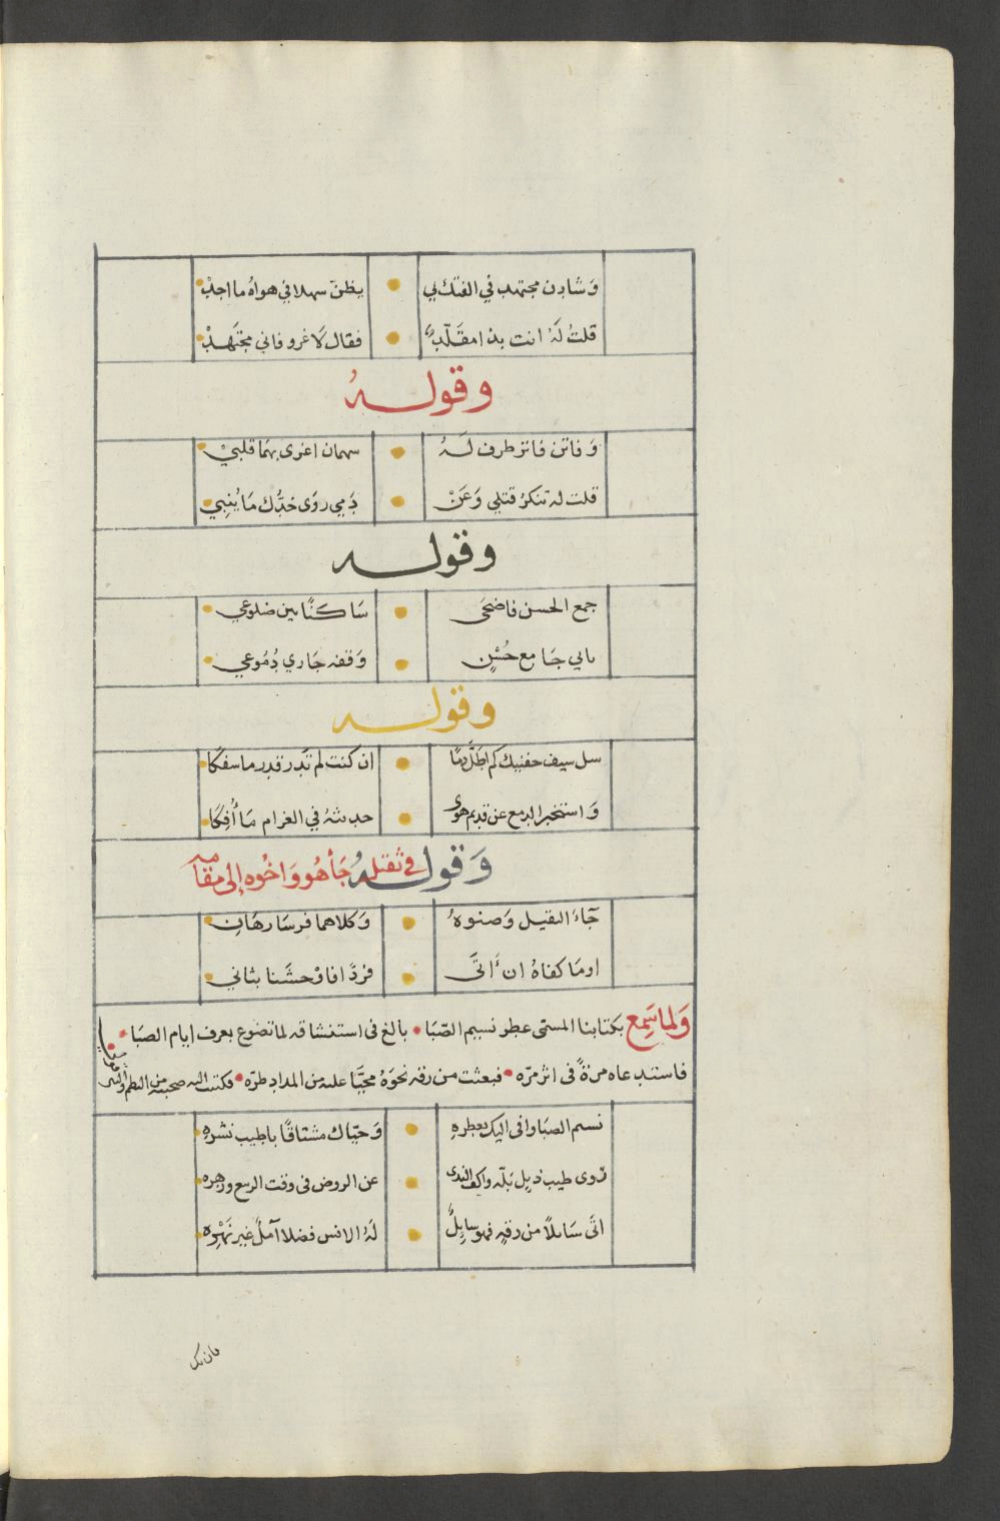 وَشادِن مجتهد في الفتك بي • يظنّ سهلا في هواهُ ما اجد
قلتُ لَهُ انت بذا مقَلّد • فقال لا غرو فاني مجتَهد
وقولـــهُ
وَفاتن فاتر طرف لَــهُ • سهمان اغرى بهما قلبي
قلت له تنكر قتلي وَعَنْ • دَمي روَى خدُّك مَا يُنبِي
وقولـــه
جمع الحسن فاضحَى • سَاكنًا بين ضلوعي
بابي جَامع حُسْنٍ • وَقفه جَاري دُمُوعي
وقولـــه
سل سيف جفنيك كم اطلّ دمًا • ان كنت لم تَدر قدر ما سفكا
وَاستخبر الدمع عن قديم هوى • حديثهُ في الغرام مَا أُفِكا
وَقولـــهُ في ثقتل جَأ هُو وَاخُوه إلى مقامه
جَآءَ الثقيل وَصنوهُ • وَكلاهما فرسَا رهَان
اومَا كفاهُ ان أَتَى • فردًا فاوْحشَنا بثاني
وَلما سَمِع بكتابنا المسمّى عطر نسيم الصّبَا • بالغ فى استنشاقه لما تضوع بعرف ايام الصبَا •
فاستدعاه مرةً فى اثر مرّه • فبعثت من رقه نحوَهُ محيَّا عليه من المداد طرّه • فكتبت اليه صحبته من النظم
نسيم الصبَا وافى اليك بعطرهِ • وَحيّاك مشتاقًا باطيب نشرهِ
رَوى طيب ذيل بَلّه واكف الندى • عن الروض فى وقت الربيع وزهره
اتَى سَائلاً من رقهِ فهو سايِلٌ • لَهُ الانس فضلا آملٌ غير نَهْرِه
فان تك